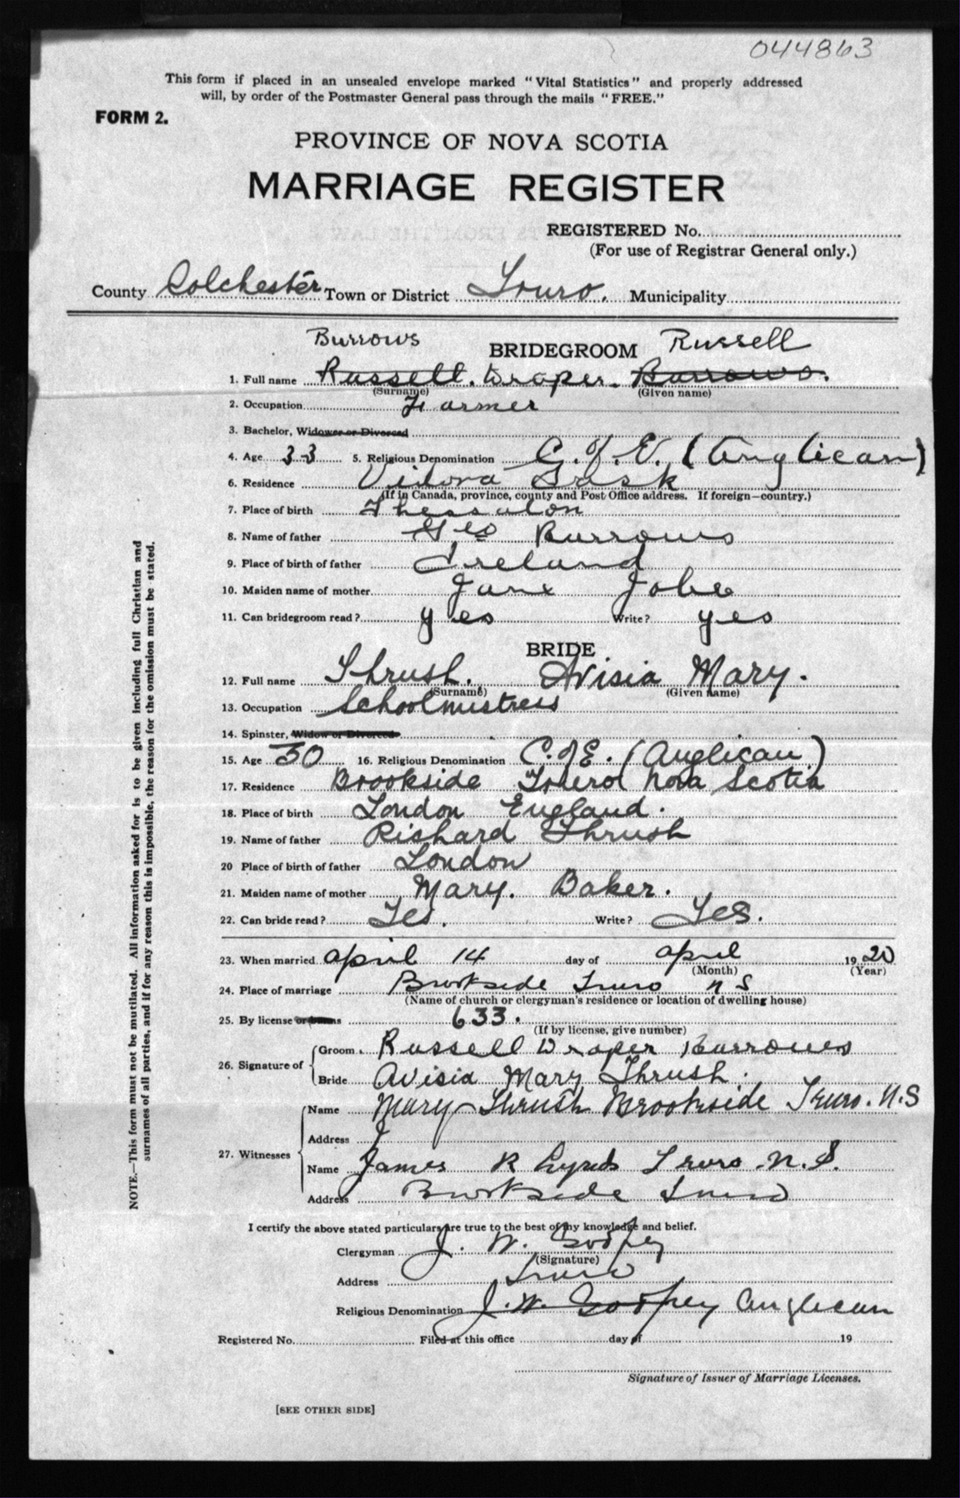 044863
This form if placed in an unsealed envelope marked "Vital Statistics" and properly addressed
will, by order of the Postmaster General pass through the mails "FREE."
FORM 2.
PROVINCE OF NOVA SCOTIA
MARRIAGE REGISTER
REGISTERED No.
(For use of Registrar General only.)
County Colchester Town or District Truro. Municipality
Burrows BRIDEGROOM Russell
1. Full name Russell. Draper. Burrows.
(Surname) (Given name)
2. Occupation Farmer
3. Bachelor, Widower or Divorced
4. Age 33 5. Religious Denomination C. of E. (Anglican)
6. Residence Vidora Sask
(If in Canada, province, county and Post Office address. If foreign—country.)
7. Place of birth Thessalon
8. Name of father Geo Burrows
9. Place of birth of father Ireland
10. Maiden name of mother Jane Jobe
11. Can bridegroom read? yes Write? yes
BRIDE
12. Full name Thrush. Avisia Mary.
(Surname) (Given name)
13. Occupation Schoolmistress
14. Spinster, Widow or Divorced
15. Age 30 16. Religious Denomination C. of E. (Anglican)
17. Residence Brookside Truro Nova Scotia
18. Place of birth London England.
19. Name of father Richard Thrush
20 Place of birth of father London
21. Maiden name of mother Mary. Baker.
22. Can bride read? Yes. Write? Yes.
23. When married April 14 day of April 1920
(Month) (Year)
24. Place of marriage Brookside Truro N S
(Name of church or clergyman's residence or location of dwelling house)
25. By license or banns 633.
(If by license, give number)
26. Signature of
Groom Russell Draper Burrows
Bride Avisia Mary Thrush.
27. Witnesses
Name Mary Thrush Brookside Truro. N.S
Address
Name James R Lynds Truro N.S.
Address Brookside Truro
I certify the above stated particulars are true to the best of my knowledge and belief.
Clergyman J. W. Godfrey
(Signature)
Address Truro
Religious Denomination J. W. Godfrey Anglican
Registered No. Filed at this office day of 19
Signature of Issuer of Marriage Licenses.
[SEE OTHER SIDE]
NOTE.—This form must not be mutilated. All information asked for is to be given including full Christian and
surnames of all parties, and if for any reason this is impossible, the reason for the omission must be stated.